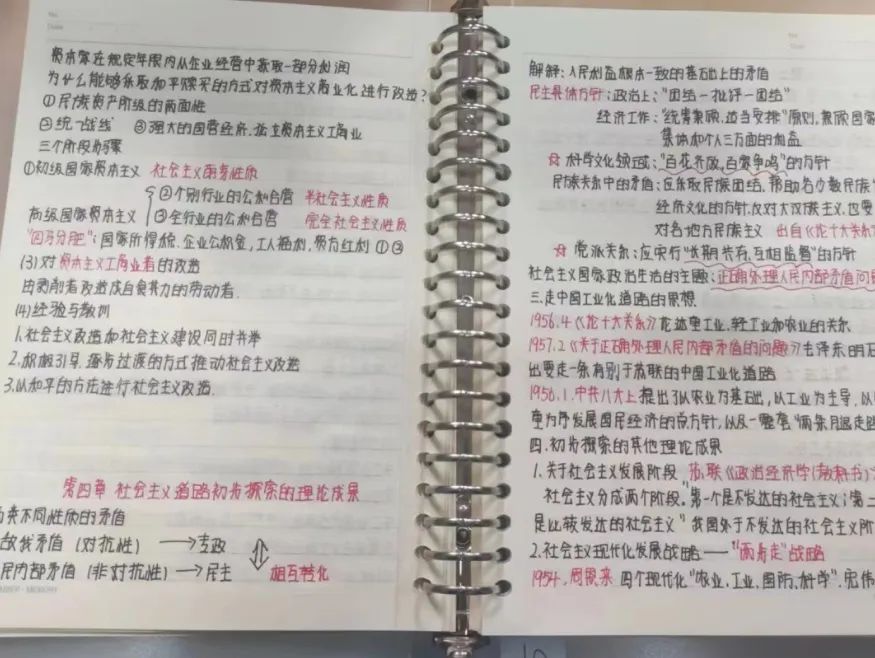 资本家在规定年限内从企业经营中获取一部分利润
为什么能够采取和平赎买的方式对资本主义商业化进行改造?
①民族资产阶级的两面性
②统一战线 ③强大的国营经济,孤立资本主义工商业
三个阶段步骤
①初级国家资本主义 社会主义因素性质
②个别行业的公私合营 半社会主义性质
高级国家资本主义 ③全行业的公私合营 完全社会主义性质
"四马分肥":国家所得税,企业公积金,工人福利,资方红利 ①②
(3)对资本主义工商业者的改造
由剥削者改造成自食其力的劳动者.
(4)经验与教训
1.社会主义改造和社会主义建设同时并举
2.积极引导,逐步过渡的方式推动社会主义改造
3.以和平的方法进行社会主义改造.
第四章 社会主义道路初步探索的理论成果
类不同性质的矛盾
敌我矛盾(对抗性)→专政
民内部矛盾(非对抗性)→民主 相互转化
解释:人民利益根本一致的基础上的矛盾
民主具体方针:政治上:"团结-批评-团结"
经济工作:"统筹兼顾,适当安排"原则,兼顾国家
集体和个人三方面的利益
科学文化领域:"百花齐放,百家争鸣"的方针
民族关系中的矛盾:应采取民族团结,帮助各少数民族
经济文化的方针,反对大汉族主义,也要
对各地方民族主义 出自《论十大关系
党派关系:应实行"长期共存,互相监督"的方针
社会主义国家政治生活的主题:正确处理人民内部矛盾问
三.走中国工业化道路的思想
1956.4《论十大关系》论述重工业,轻工业和农业的关系
1957.2《关于正确处理人民内部矛盾的问题》毛泽东明
出要走一条有别于苏联的中国工业化道路
1956.1.中共八大上提出了以农业为基础,以工业为主导,以
重为序发展国民经济的总方针,以及一整套"两条腿走
四.初步探索的其他理论成果
1.关于社会主义发展阶段 苏联《政治经济学(教科书)》
社会主义分成两个阶段."第一个是不发达的社会主义;第二
是比较发达的社会主义"我国处于不发达的社会主义阶
2.社会主义现代化发展战略——"两步走"战略
1954,周恩来 四个现代化"农业,工业,国防,科学".宏伟